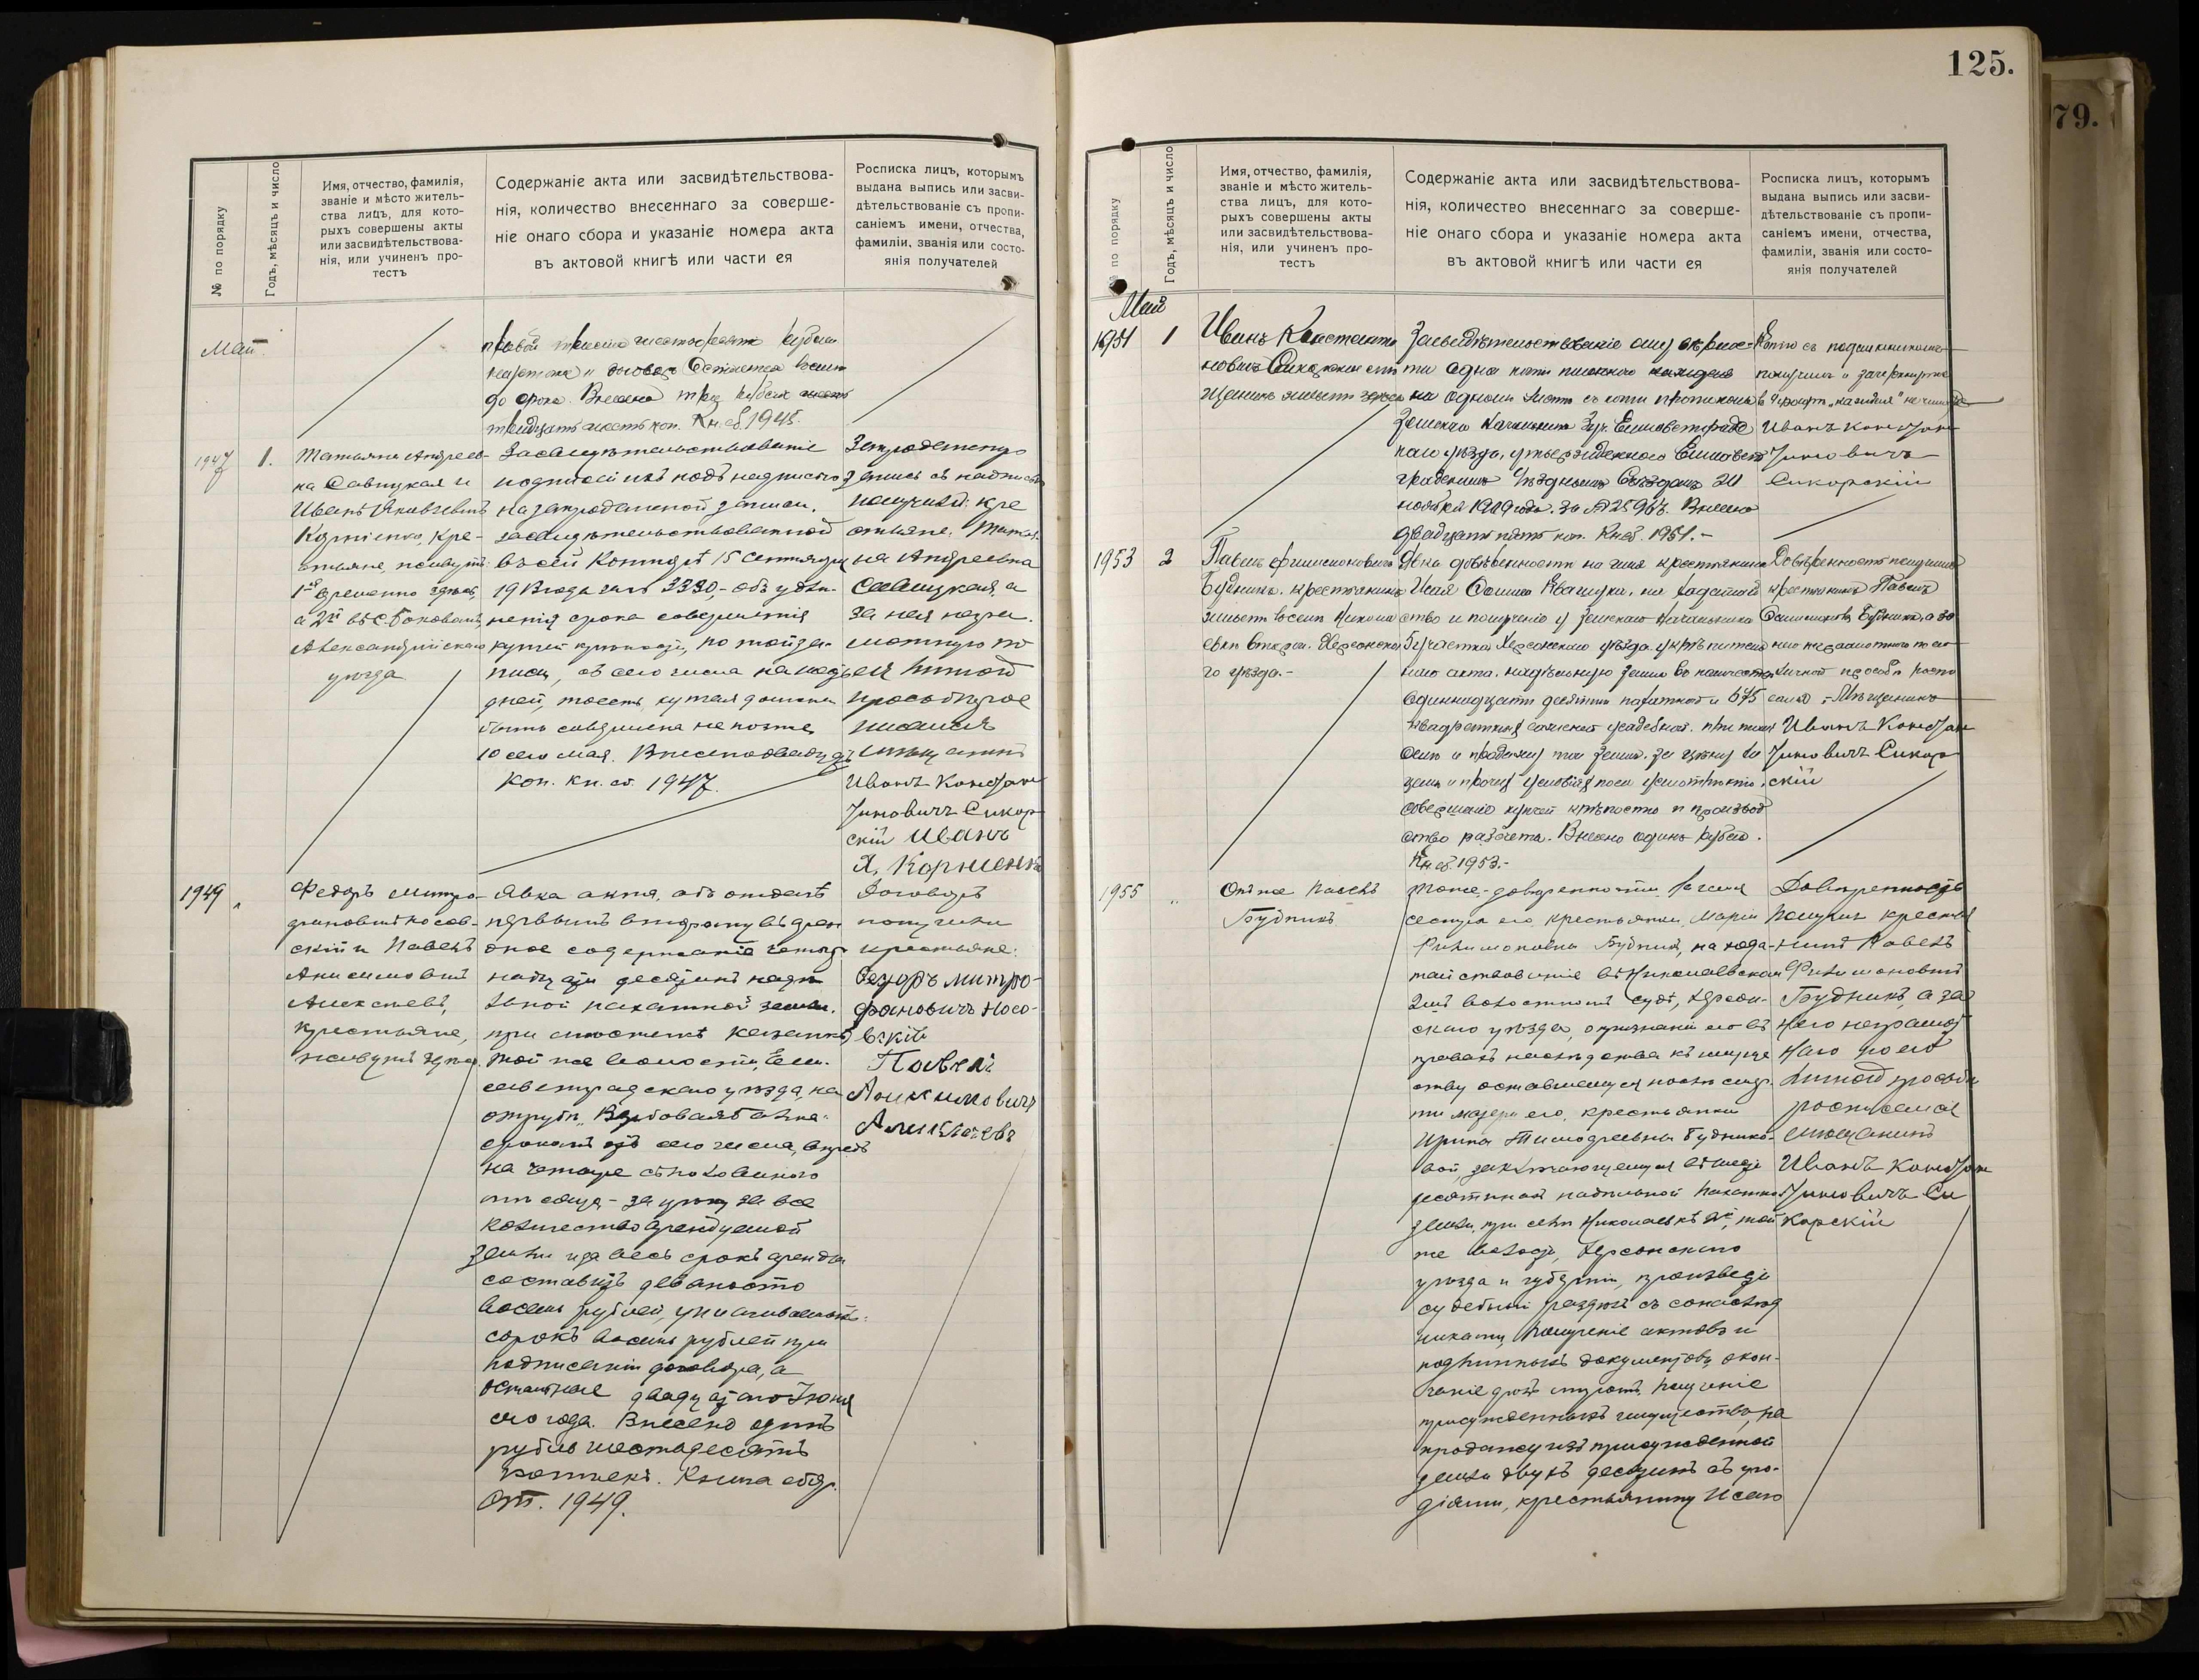 125.
79.
№ по порядку
Годъ, мѣсяцъ и число
Имя, отчество, фамилія,
званіе и мѣсто житель-
ства лицъ, для кото-
рыхъ совершены акты
или засвидѣтельствова-
нія, или учиненъ про-
тестъ
Содержаніе акта или засвидѣтельствова-
нія, количество внесеннаго за соверше-
ніе онаго сбора и указаніе номера акта
въ актовой книгѣ или части ея
Росписка лицъ, которымъ
выдана выпись или засви-
дѣтельствованіе съ пропи-
саніемъ имени, отчества,
фамиліи, званія или состо-
янія получателей
Май
до срока. Внесено три рубля
тридцать шесть коп. Кн. сб. 1945.
1947 1.
Татьяна Андреев-
на Савицкая и
Иванъ Яковлевичъ
Корніенко, кре-
стьяне, живутъ:
1ая временно здѣсь,
а 2й въ с. Боковомъ,
Александрійскаго
уѣзда
Засвидѣтельствованіе
подписей ихъ подъ надписью
на запродажной записи,
засвидѣтельствованной
въ сей Конторѣ 15 Сентября
19 года за № 3330,- объ удли-
неніи срока совершенія
купчей крѣпости, по той за-
писи, съ сего числа на
дней, тоесть купчая должна
быть совершена не позже
10 сего мая. Внесено двадцать
коп. Кн. сб. 1947.
Запродажную
запись съ надписью
получили: кре
стьяне: Татья-
на Андреевна
Савицкая, а
за нея негра-
мотную по
ея личной
просьбѣ рос
писался
мѣщанинъ
Иванъ Констан
тиновичъ Сикор
скій Иванъ
Я. Корніенко
1949 "
Федоръ Митро-
фановичъ Носов-
скій и Павелъ
Анисимовичъ
Алексѣевъ,
крестьяне,
живутъ здѣсь.
Явка акта, объ отдачѣ
первымъ второму въ арен
дное содержаніе четыр-
надцати десятинъ надѣ
льной пахатной земли,
при
той же волости, Ели-
саветградскаго уѣзда, на
срокомъ отъ сего числа, впредь
на четыре съ половиною
мѣсяца - за цѣну за все
количество арендуемой
земли и за весь срокъ аренды
составитъ девяносто
восемь рублей, уплачиваемыхъ:
сорокъ восемь рублей при
подписаніи договора, а
остальные двадцатаго Іюня
сего года. Внесено одинъ
рубль шестьдесятъ
копѣекъ. Книга сбор.
Отт. 1949.
Договоръ
получили
крестьяне:
Федоръ Митро-
фановичъ Носо-
вскій
Павелъ
Анисимовичъ
Алексѣевъ
№ по порядку
Годъ, мѣсяцъ и число
Имя, отчество, фамилія,
званіе и мѣсто житель-
ства лицъ, для кото-
рыхъ совершены акты
или засвидѣтельствова-
нія, или учиненъ про-
тестъ
Содержаніе акта или засвидѣтельствова-
нія, количество внесеннаго за соверше-
ніе онаго сбора и указаніе номера акта
въ актовой книгѣ или части ея
Росписка лицъ, которымъ
выдана выпись или засви-
дѣтельствованіе съ пропи-
саніемъ имени, отчества,
фамиліи, званія или состо-
янія получателей
Май
1951 1
Иванъ Константи
новичъ Сикорскій
щанинъ живетъ здѣсь
Засвидѣтельствованіе ему вѣрнос-
ти одна копіи
на одномъ листѣ съ копіи
Земскаго Начальника Елисаветград
скаго уѣзда, утвержденнаго Елисавет
градскимъ Уѣзднымъ Съѣздомъ 20
ноября 1909 года. за № 25963. Внесено
двадцать пять коп. Кн. сб. 1951.-
Копію съ подлинникомъ
получилъ и зачеркнутое
Иванъ Констан
тиновичъ
Сикорскій
1953 2
Павелъ Филимоновичъ
Будникъ, крестьянинъ
живетъ въ селѣ Никола
евкѣ второй Херсонска
го уѣзда.-
Явка довѣренности на имя крестьянина
Исая Квачука, на ходатай
ство и полученіе у Земскаго Начальника
5 участка Херсонскаго уѣзда укрѣпитель
наго акта, надѣльную землю въ количествѣ
одиннадцати десятинъ пахатной и 675
квадратныхъ саженей усадебной, при томъ
селѣ и продажу той земли, за цѣну и
совершаніе купчей крѣпости и производ
ство разсчета. Внесено одинъ рубль.
Кн. сб. 1953.-
Довѣренность получилъ
крестьянинъ Павелъ
Филимоновъ Будникъ, а за
него неграмотнаго по его
личной просьбѣ роспи
сался - Мѣщанинъ
Иванъ Констан
тиновичъ Сикор
скій
1955 "
Онъ же Павелъ
Будникъ
Тоже - довѣренности на имя
сестры его, крестьянки, Маріи
Филимоновны Будникъ, на хода-
тайствованіе въ Николаевскомъ
2мъ волостномъ судѣ, Херсон-
скаго уѣзда, о признаніи его въ
правахъ наслѣдства къ имуще
ству оставшемуся послѣ смер-
ти матери его, крестьянки
Ирины Тимофеевны Буднико-
вой, заключающемуся въ шести
десятинахъ надѣльной пахатной
земли, при селѣ Николаевкѣ 2й, той
же волости, Херсонскаго
уѣзда и губерніи, произвести
судебный раздѣлъ съ сонаслѣд
никами, полученіе актовъ и
подлинныхъ документовъ, окон-
чаніе дѣлъ миромъ, полученіе
присужденныхъ имуществъ, на
продажу изъ присужденной
земли двухъ десятинъ съ уго-
діями, крестьянину Исаю
Довѣренность
получилъ кресть
нинъ Павелъ
Филимоновичъ
Будникъ, а за
него неграмот
наго по его
личной просьбѣ
росписался
мѣщанинъ
Иванъ Констан
тиновичъ Си
корскій